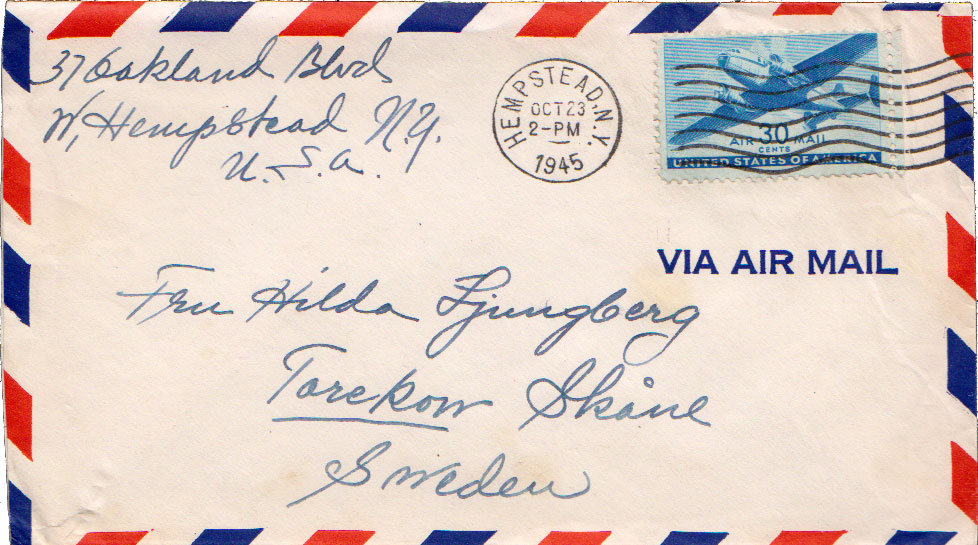 37 Oakland Blvd
W. Hempstead N.Y.
U.S.A.
HEMPSTEAD, N.Y.
OCT 23
2-PM
1945
AIR 30 MAIL
CENTS
UNITED STATES OF AMERICA
VIA AIR MAIL
Fru Hilda Ljungberg
Torekow Skåne
Sweden